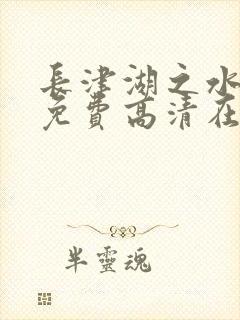 長津湖之水
免費高清在
半靈魂